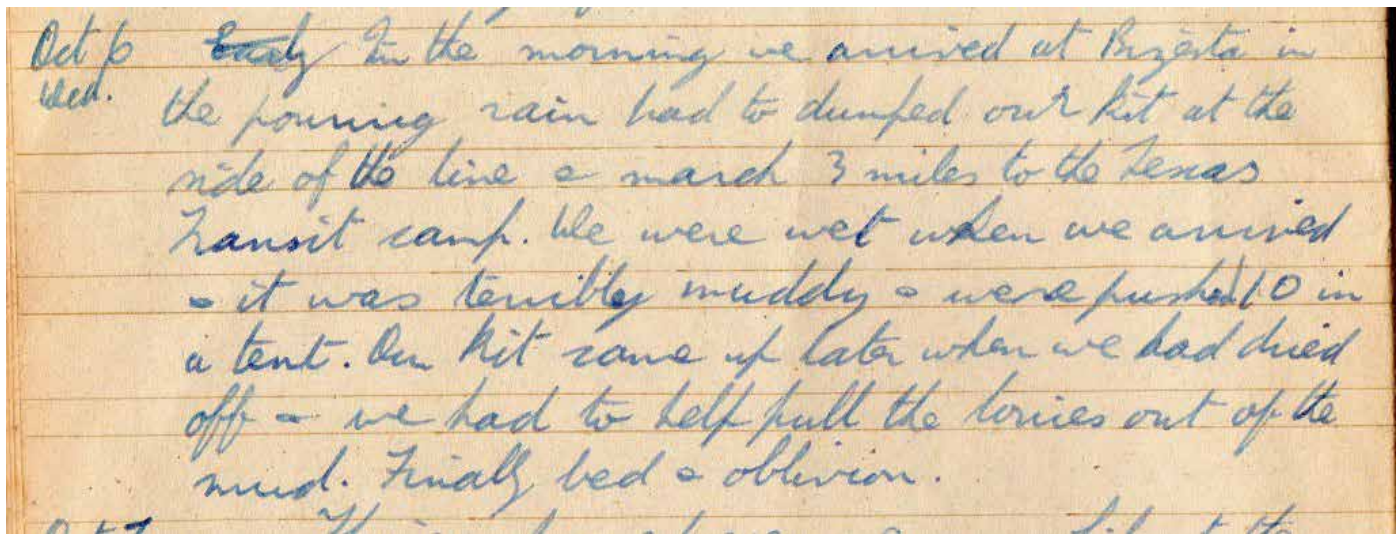 Oct 6 Early In the morning we arrived at Bizerta in
Wed. the pouring rain had to dumped our kit at the
side of the line & march 3 miles to the Texas
Transit camp. We were wet when we arrived
& it was terribly muddy & were pushed 10 in
a tent. Our kit came up later when we had dried
off & we had to help pull the lorries out of the
mud. Finally bed & oblivion.
Oct 7 the